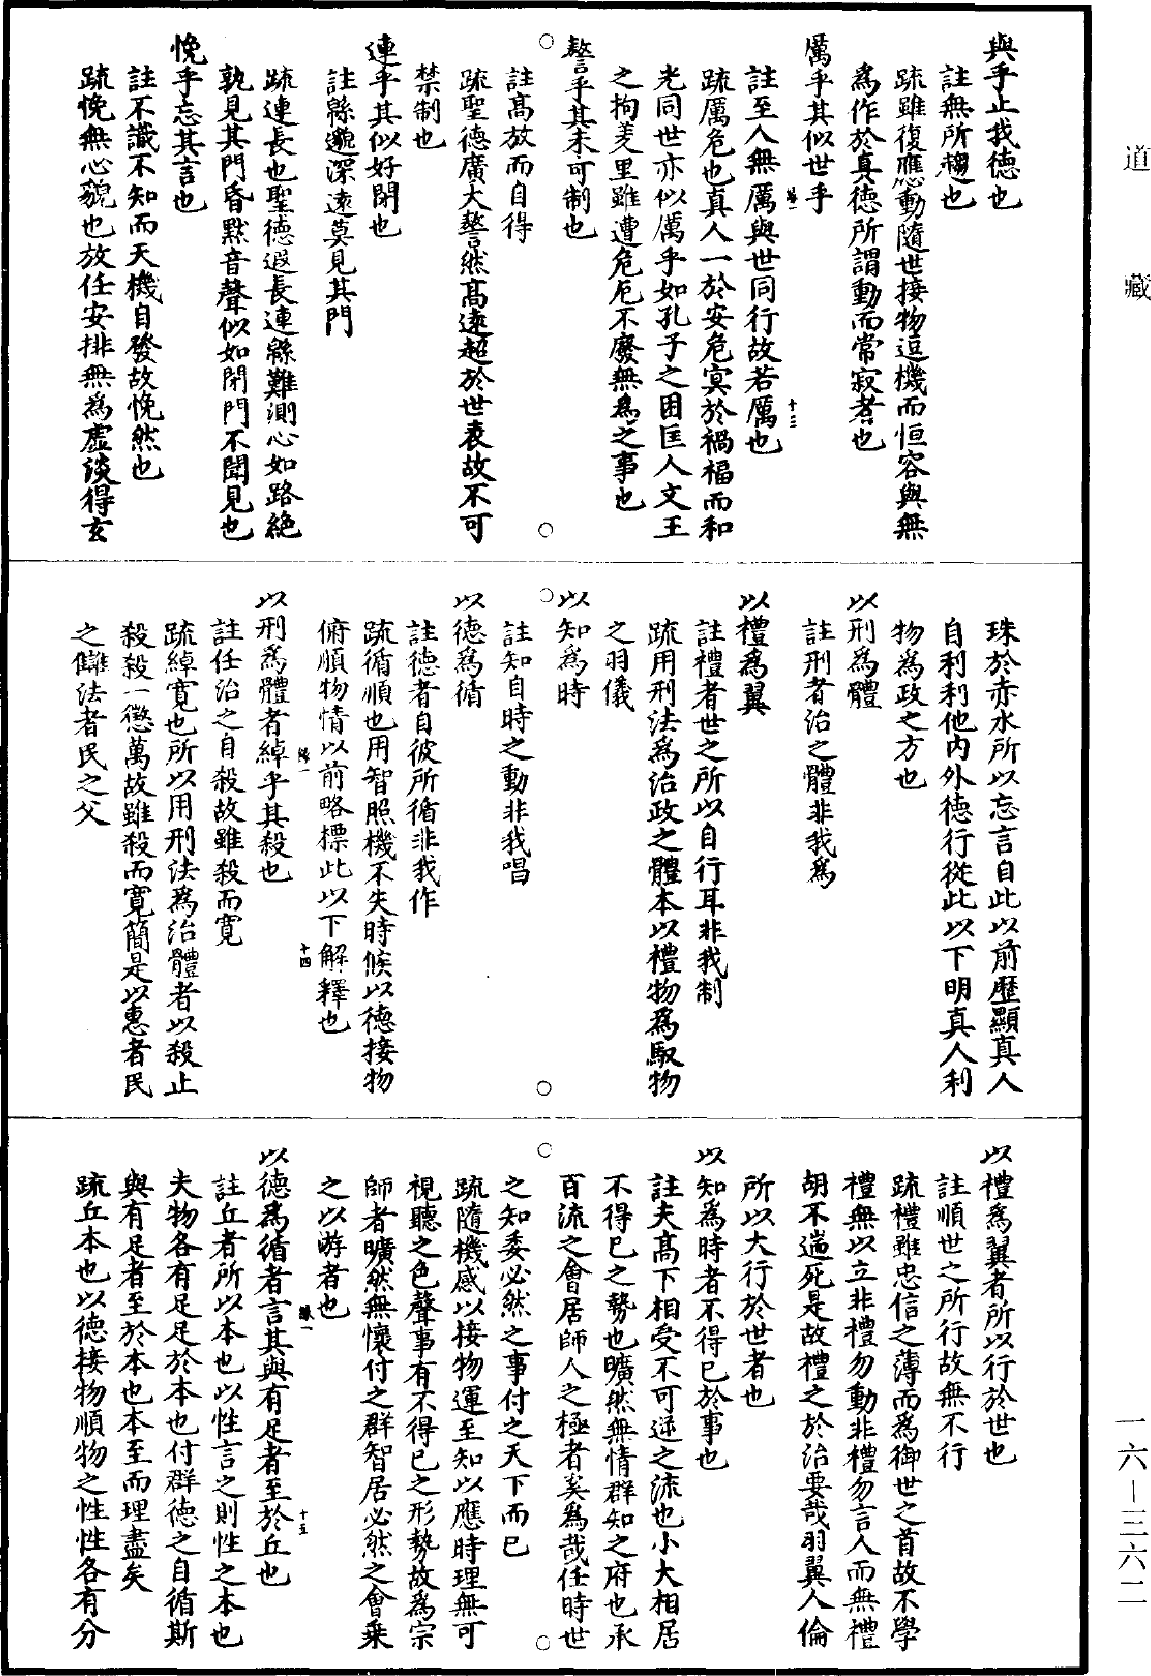 道藏
與乎止我德也
註無所趨也
疏雖復應動隨世接物逗機而恒容與無
為作於真德所謂動而常寂者也
厲乎其似世乎
註至人無厲與世同行故若厲也
疏厲危也真人一於安危冥於禍福而和
光同世亦似厲乎如孔子之困匡人文王
之拘羑里雖遭危厄不廢無為之事也
謷乎其未可制也
註高放而自得
疏聖德廣大謷然高遠超於世表故不可
禁制也
連乎其似好閉也
註緜邈深遠莫見其門
疏連長也聖德遐長連緜難測心如路絕
孰見其門昏默音聲似如閉門不聞見也
悗乎忘其言也
註不識不知而天機自發故悗然也
疏悗無心貌也放任安排無為虛談得玄
珠於赤水所以忘言自此以前歷顯真人
自利利他內外德行從此以下明真人利
物為政之方也
以刑為體
註刑者治之體非我為
以禮為翼
註禮者世之所以自行耳非我制
疏用刑法為治政之體本以禮物為馭物
之羽儀
以知為時
註知自時之動非我唱
以德為循
註德者自彼所循非我作
疏循順也用智照機不失時候以德接物
俯順物情以前略標此以下解釋也
以刑為體者綽乎其殺也
註任治之自殺故雖殺而寬
疏綽寬也所以用刑法為治體者以殺止
殺殺一懲萬故雖殺而寬簡是以惠者民
之讎法者民之父
以禮為翼者所以行於世也
註順世之所行故無不行
疏禮雖忠信之薄而為御世之首故不學
禮無以立非禮勿動非禮勿言人而無禮
胡不遄死是故禮之於治要哉羽翼人倫
所以大行於世者也
以知為時者不得已於事也
註夫高下相受不可逆之流也小大相居
不得已之勢也曠然無情群知之府也承
百流之會居師人之極者奚為哉任時世
之知委必然之事付之天下而已
疏隨機感以接物運至知以應時理無可
視聽之色聲事有不得已之形勢故為宗
師者曠然無懷付之群智居必然之會乘
之以游者也
以德為循者言其與有足者至於丘也
註丘者所以本也以性言之則性之本也
夫物各有足足於本也付群德之自循斯
與有足者至於本也本至而理盡矣
疏丘本也以德接物順物之性性各有分
十三
十四
十五
一六—三六二